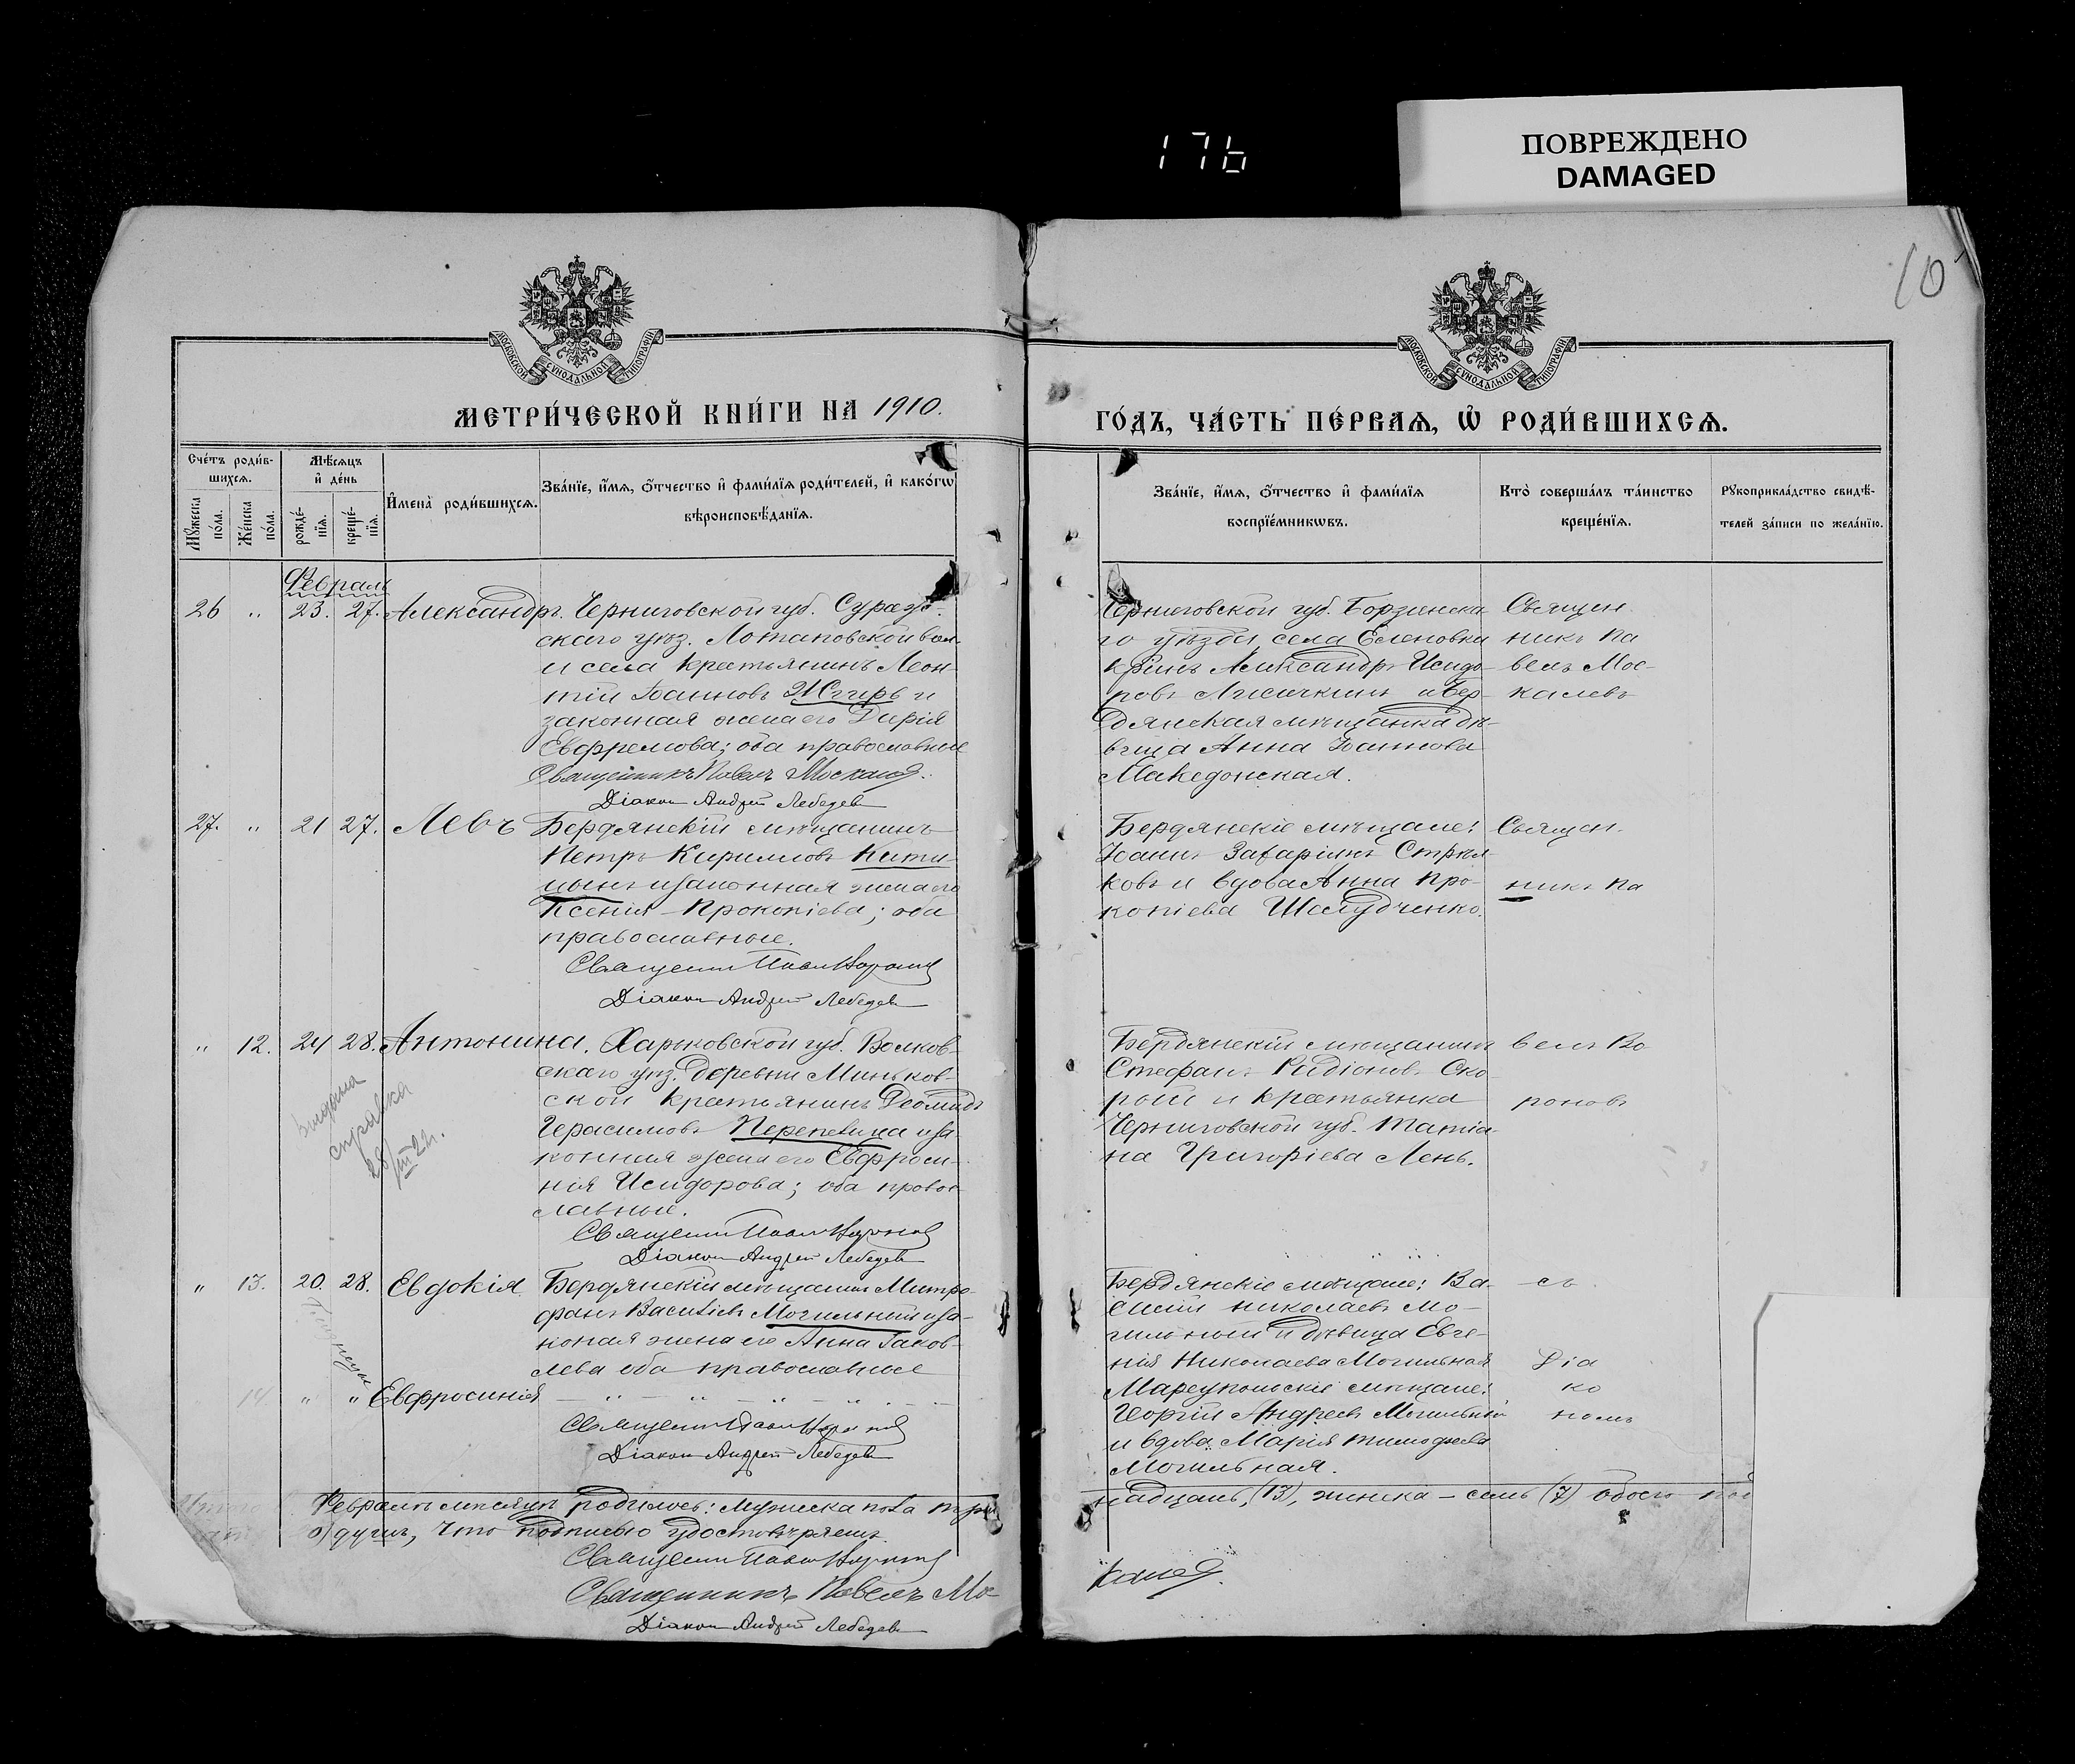 176
ПОВРЕЖДЕНО
DAMAGED
10
МОСКОВСКОЙ СѴНОДАЛЬНОЙ ТИПОГРАФІИ
МОСКОВСКОЙ СѴНОДАЛЬНОЙ ТИПОГРАФІИ
МЕТРИ́ЧЕСКОЙ КНИ́ГИ НА 1910.
ГО́ДЪ, ЧА́СТЬ ПЕ́РВАѦ, Ѽ РОДИ́ВШИХСѦ.
Сче́тъ роди́в-
шихсѧ.
Мꙋ́жеска по́ла.
Же́нска по́ла.
Мѣ́сѧцъ
и҆ де́нь
рожде́-
нїѧ.
креще́-
нїѧ.
И҆мена̀ роди́вшихсѧ.
Зва́нїе, и҆́мѧ, ѻ҆́тчество и҆ фами́лїѧ роди́телей, и҆ како́гѡ
вѣроисповѣ́данїѧ.
Зва́нїе, и҆́мѧ, ѻ҆́тчество и҆ фами́лїѧ
воспрїе́мникѡвъ.
Кто̀ соверша́лъ та́инство
креще́нїѧ.
Рꙋкоприкла́дство свидѣ́-
телей за́писи по жела́нїю.
Февраль
26 " 23. 27. Александръ. Черниговской губ. Сураж-
скаго уѣз. Лотаковской вол.
и села крестьянинъ Леон-
тій Іоанновъ и
законная жена его Дарія
Евфремова; оба православные
Священникъ Павелъ Москалев.
Діакон Андрей Лебедев
Черниговской губ. Борзенска-
го уѣзда, села Еленовки
кр-инъ Александръ Исидо-
ровъ и Бер-
дянская мѣщанка дѣ-
вица Анна Іоаннова
Македонская.
Священ
никъ Па
велъ Мос-
калевъ
27. " 21 27. Левъ Бердянскій мѣщанинъ
Петръ Кирилловъ Кити-
цынъ и законная жена его
Ксенія Прокопіева; оба
православные.
Священни Павел Воронов
Діакон Андрей Лебедев
Бердянскіе мѣщане:
Іоаннъ Захаріинъ Стрѣл-
ковъ и вдова Анна Про-
копіева Шелудченко.
Священ.
никъ Па
" 12. 24 28. Антонина. Харьковской губ. Волков-
скаго уѣз. деревни Миньков-
ской крестьянинъ Деомидъ
Герасимовъ Перепелица и за-
конная жена его Евфроси-
нія Исидорова; оба правос-
лавные.
Священни Павел Воронов
Діакон Андрей Лебедев
выдана
справка
28/III 22г.
Бердянскій мѣщанинъ
Стефанъ Ско-
рой и крестьянка
Черниговской губ. Татіа-
на Григоріева Лень.
велъ Во
роновъ
" 13. 20. 28. Евдокія Бердянскій мѣщанинъ Митро-
фанъ Василіевъ Могильный и за-
конная жена его Анна Іаков-
лева оба православные
Близнецы
Бердянскіе мѣщане: Ва-
силій Николаевъ Мо-
гильный и дѣвица Евге-
нія Николаева Могильная
съ
Діа
ко
номъ
14. " " Евфросинія — " — " — " — " —
Священни Павел Воронов
Діакон Андрей Лебедев
Маріупольскіе мѣщане:
Георгій Андреевъ Могильный
и вдова Марія Тимофеева
Могильная.
Февралѣ мѣсяцѣ родилось: мужеска пола три
надцать, (13), женска — семь (7) обоего пол
душъ, что подписью удостовѣряемъ.
Священни Павел Воронов
Священникъ Павелъ Мос
калев.
Діакон Андрей Лебедев